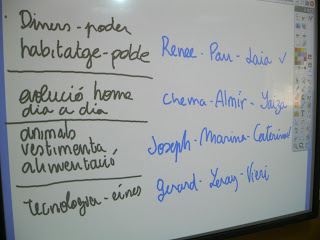 · Diners - poder
habitatge - poble
Renee - Pau - Laia ✓
evolució home
dia a dia
Chema - Almir - Yaiza
animals
vestimenta
alimentació
Joseph - Marina - Caterina
Tecnologia - eines
Gerard - Leray - Vieri